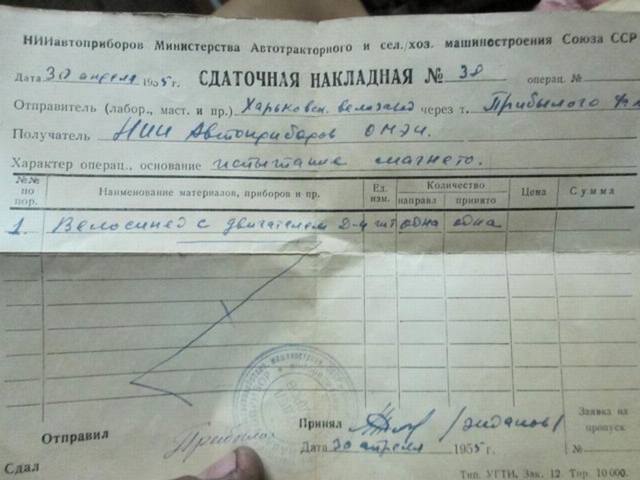 НИИавтоприборов Министерства Автотракторного и сел./хоз. машиностроения Союза ССР
Дата 30 апреля 1955г. СДАТОЧНАЯ НАКЛАДНАЯ № 38 операц. №
Отправитель (лабор., маст. и пр.) Харьковск. велозавод через т. Прибылого
Получатель НИИ Автоприборов ОМЭИ.
Характер операц., основание испытание магнето.
№№ по пор. Наименование материалов, приборов и пр. Ед. изм. Количество направл принято Цена Сумма
1. Велосипед с двигателем Д-4 шт одна одна
Отправил
Принял
Заявка на пропуск
Дата 30 апреля 1955г. №
Сдал
Тип. УГТИ, Зак. 12 Тир. 10 000.